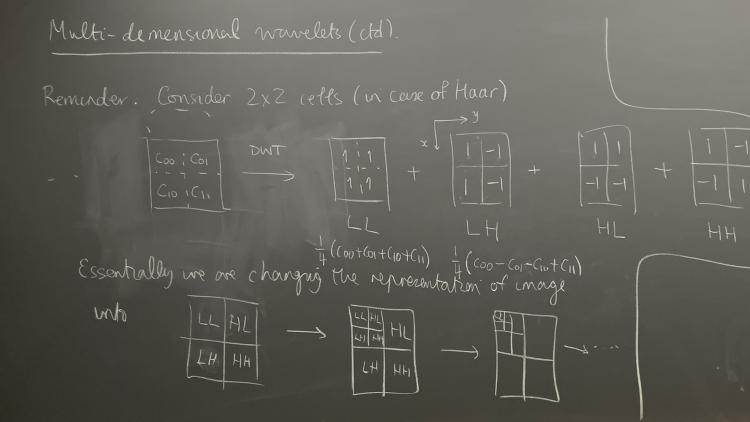 Multi-dimensional wavelets (ctd).
Reminder. Consider 2x2 cells (in case of Haar)
x y
C00 C01 DWT 1 1 + 1 -1 + 1 1 + 1 -1
C10 C11 1 1 1 -1 -1 -1 -1 1
LL LH HL HH
1/4 (C00+C01+C10+C11) 1/4 (C00-C01-C10+C11)
Essentially we are changing the representation of image
into
LL HL → LL HL HL → → ....
LH HH LH HH
LH HH